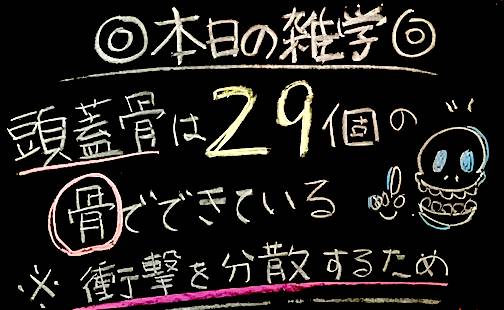 ◎本日の雑学◎
頭蓋骨は29個の
骨でできている
※衝撃を分散するため